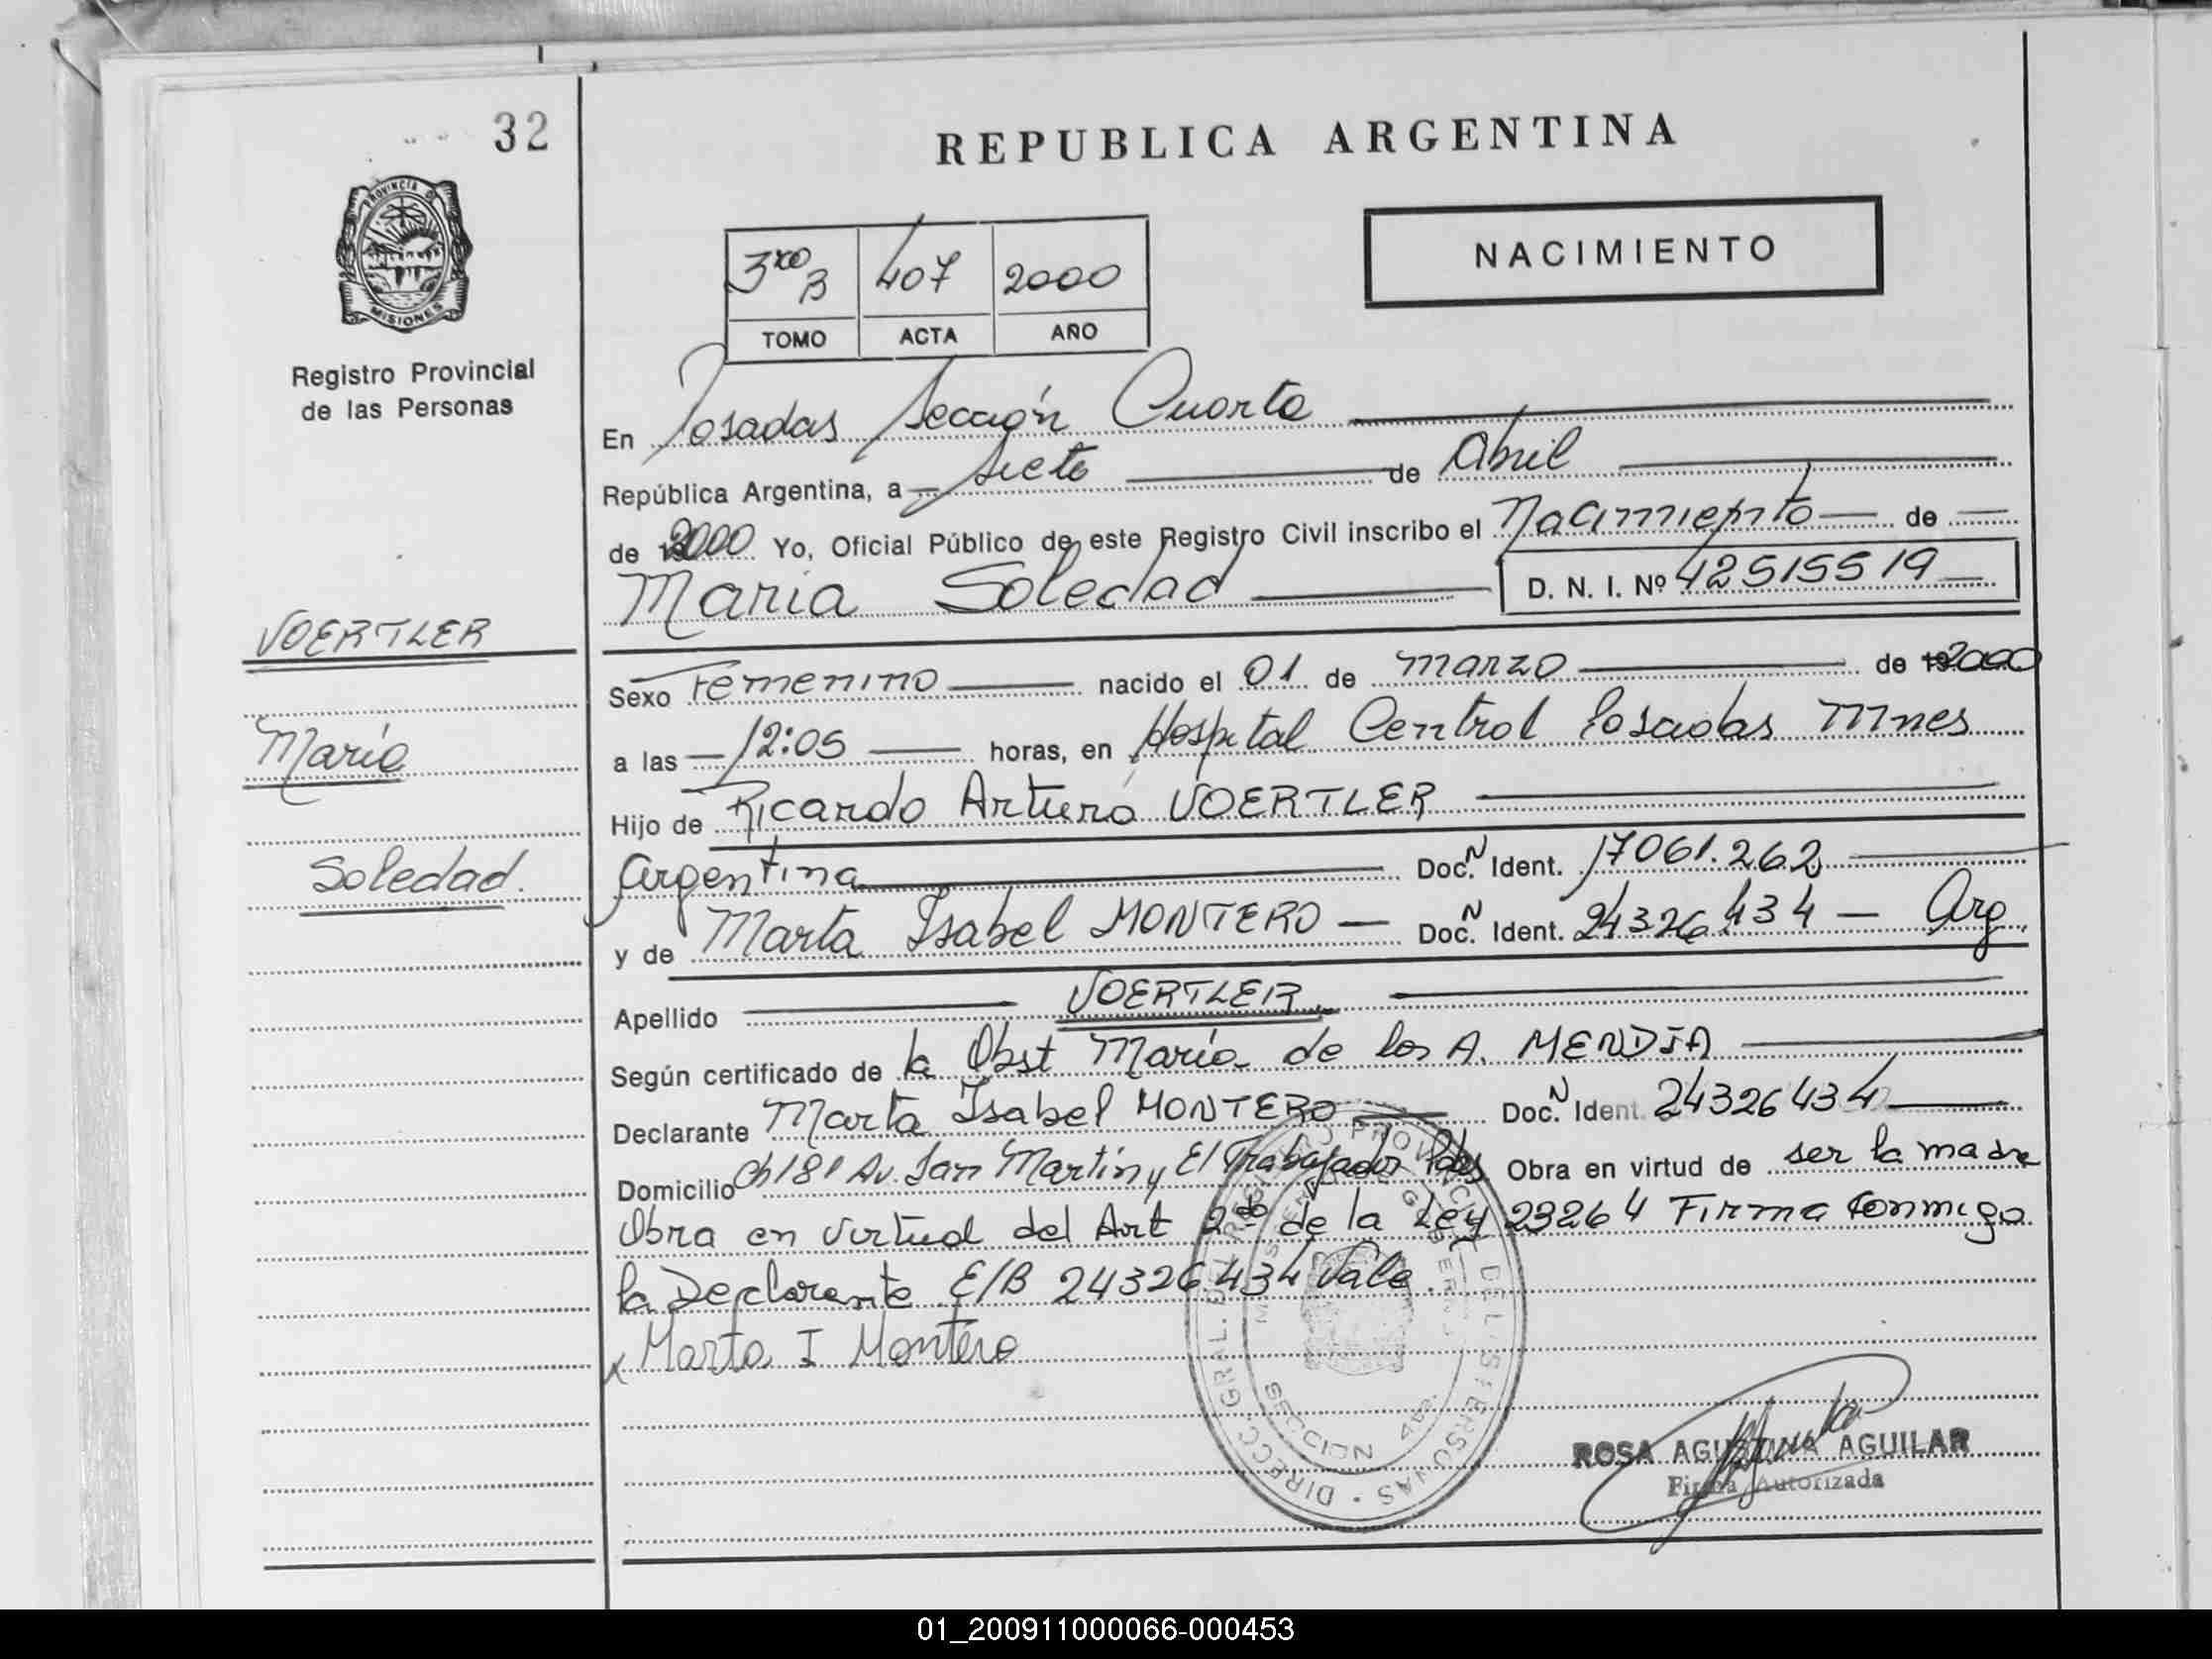 32
REPUBLICA ARGENTINA
PROVINCIA DE
MISIONES
Registro Provincial
de las Personas
NACIMIENTO
3ro B 407 2000
TOMO ACTA AÑO
En Posadas Sección Cuarta
República Argentina, a siete de Abril
de 2000 Yo, Oficial Público de este Registro Civil inscribo el Nacimiento de
Maria Soledad D. N. I. Nº 42515519
VOERTLER
María
Soledad.
Sexo Femenino nacido el 01 de marzo de 2000
a las 12:05 horas, en Hospital Central Posadas Mnes
Hijo de Ricardo Arturo VOERTLER
Argentina Doc. N Ident. 17061.262
y de Marta Isabel MONTERO Doc. N Ident. 24326434 Arg.
Apellido VOERTLER.
Según certificado de la Obst María de los A. MENDIA
Declarante Marta Isabel MONTERO Doc. N Ident. 24326434
Domicilio Ch 181 Av. San Martín y El Trabajador Pdas Obra en virtud de ser la madre
Obra en virtud del Art 2do de la Ley 23264 Firma conmigo
la Declarante E/B 24326434 Vale.
x Marta I Montero
DIRECC. GRAL. DEL REGISTRO PROVINCIAL DE LAS PERSONAS
SECCION 4ta.
ROSA AGUSTINA AGUILAR
Firma Autorizada
01_200911000066-000453